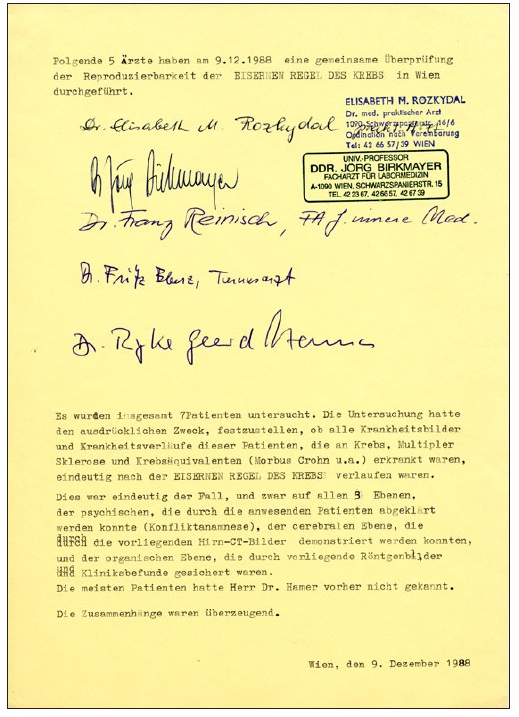 Folgende 5 Ärzte haben am 9.12.1988 eine gemeinsame Überprüfung
der Reproduzierbarkeit der EISERNEN REGEL DES KREBS in Wien
durchgeführt.
ELISABETH M. ROZKYDAL
Dr. med. praktischer Arzt
1090 Schwarzspanierstr. 16/6
Ordination nach Vereinbarung
Tel: 42 66 57/39 WIEN
Dr. Elisabeth M. Rozkydal
UNIV.-PROFESSOR
DDR. JÖRG BIRKMAYER
FACHARZT FÜR LABORMEDIZIN
A-1090 WIEN, SCHWARZSPANIERSTR. 15
TEL. 42 23 67, 42 66 57, 42 67 39
Dr. Jörg Birkmayer
Dr. Franz Reinisch, FA f. innere Med.
Dr. Fritz Turnusarzt
Dr. Ryke Geerd Hamer
Es wurden insgesamt 7Patienten untersucht. Die Untersuchung hatte
den ausdrücklichen Zweck, festzustellen, ob alle Krankheitsbilder
und Krankheitsverläufe dieser Patienten, die an Krebs, Multipler
Sklerose und Krebsäquivalenten (Morbus Crohn u.a.) erkrankt waren,
eindeutig nach der EISERNEN REGEL DES KREBS verlaufen waren.
Dies war eindeutig der Fall, und zwar auf allen 3 Ebenen,
der psychischen, die durch die anwesenden Patienten abgeklärt
werden konnte (Konfliktanamnese), der cerebralen Ebene, die
durch die vorliegenden Hirn-CT-Bilder demonstriert werden konnten,
und der organischen Ebene, die durch vorliegende Röntgenbilder
und Klinikbefunde gesichert waren.
Die meisten Patienten hatte Herr Dr. Hamer vorher nicht gekannt.
Die Zusammenhänge waren überzeugend.
Wien, den 9. Dezember 1988